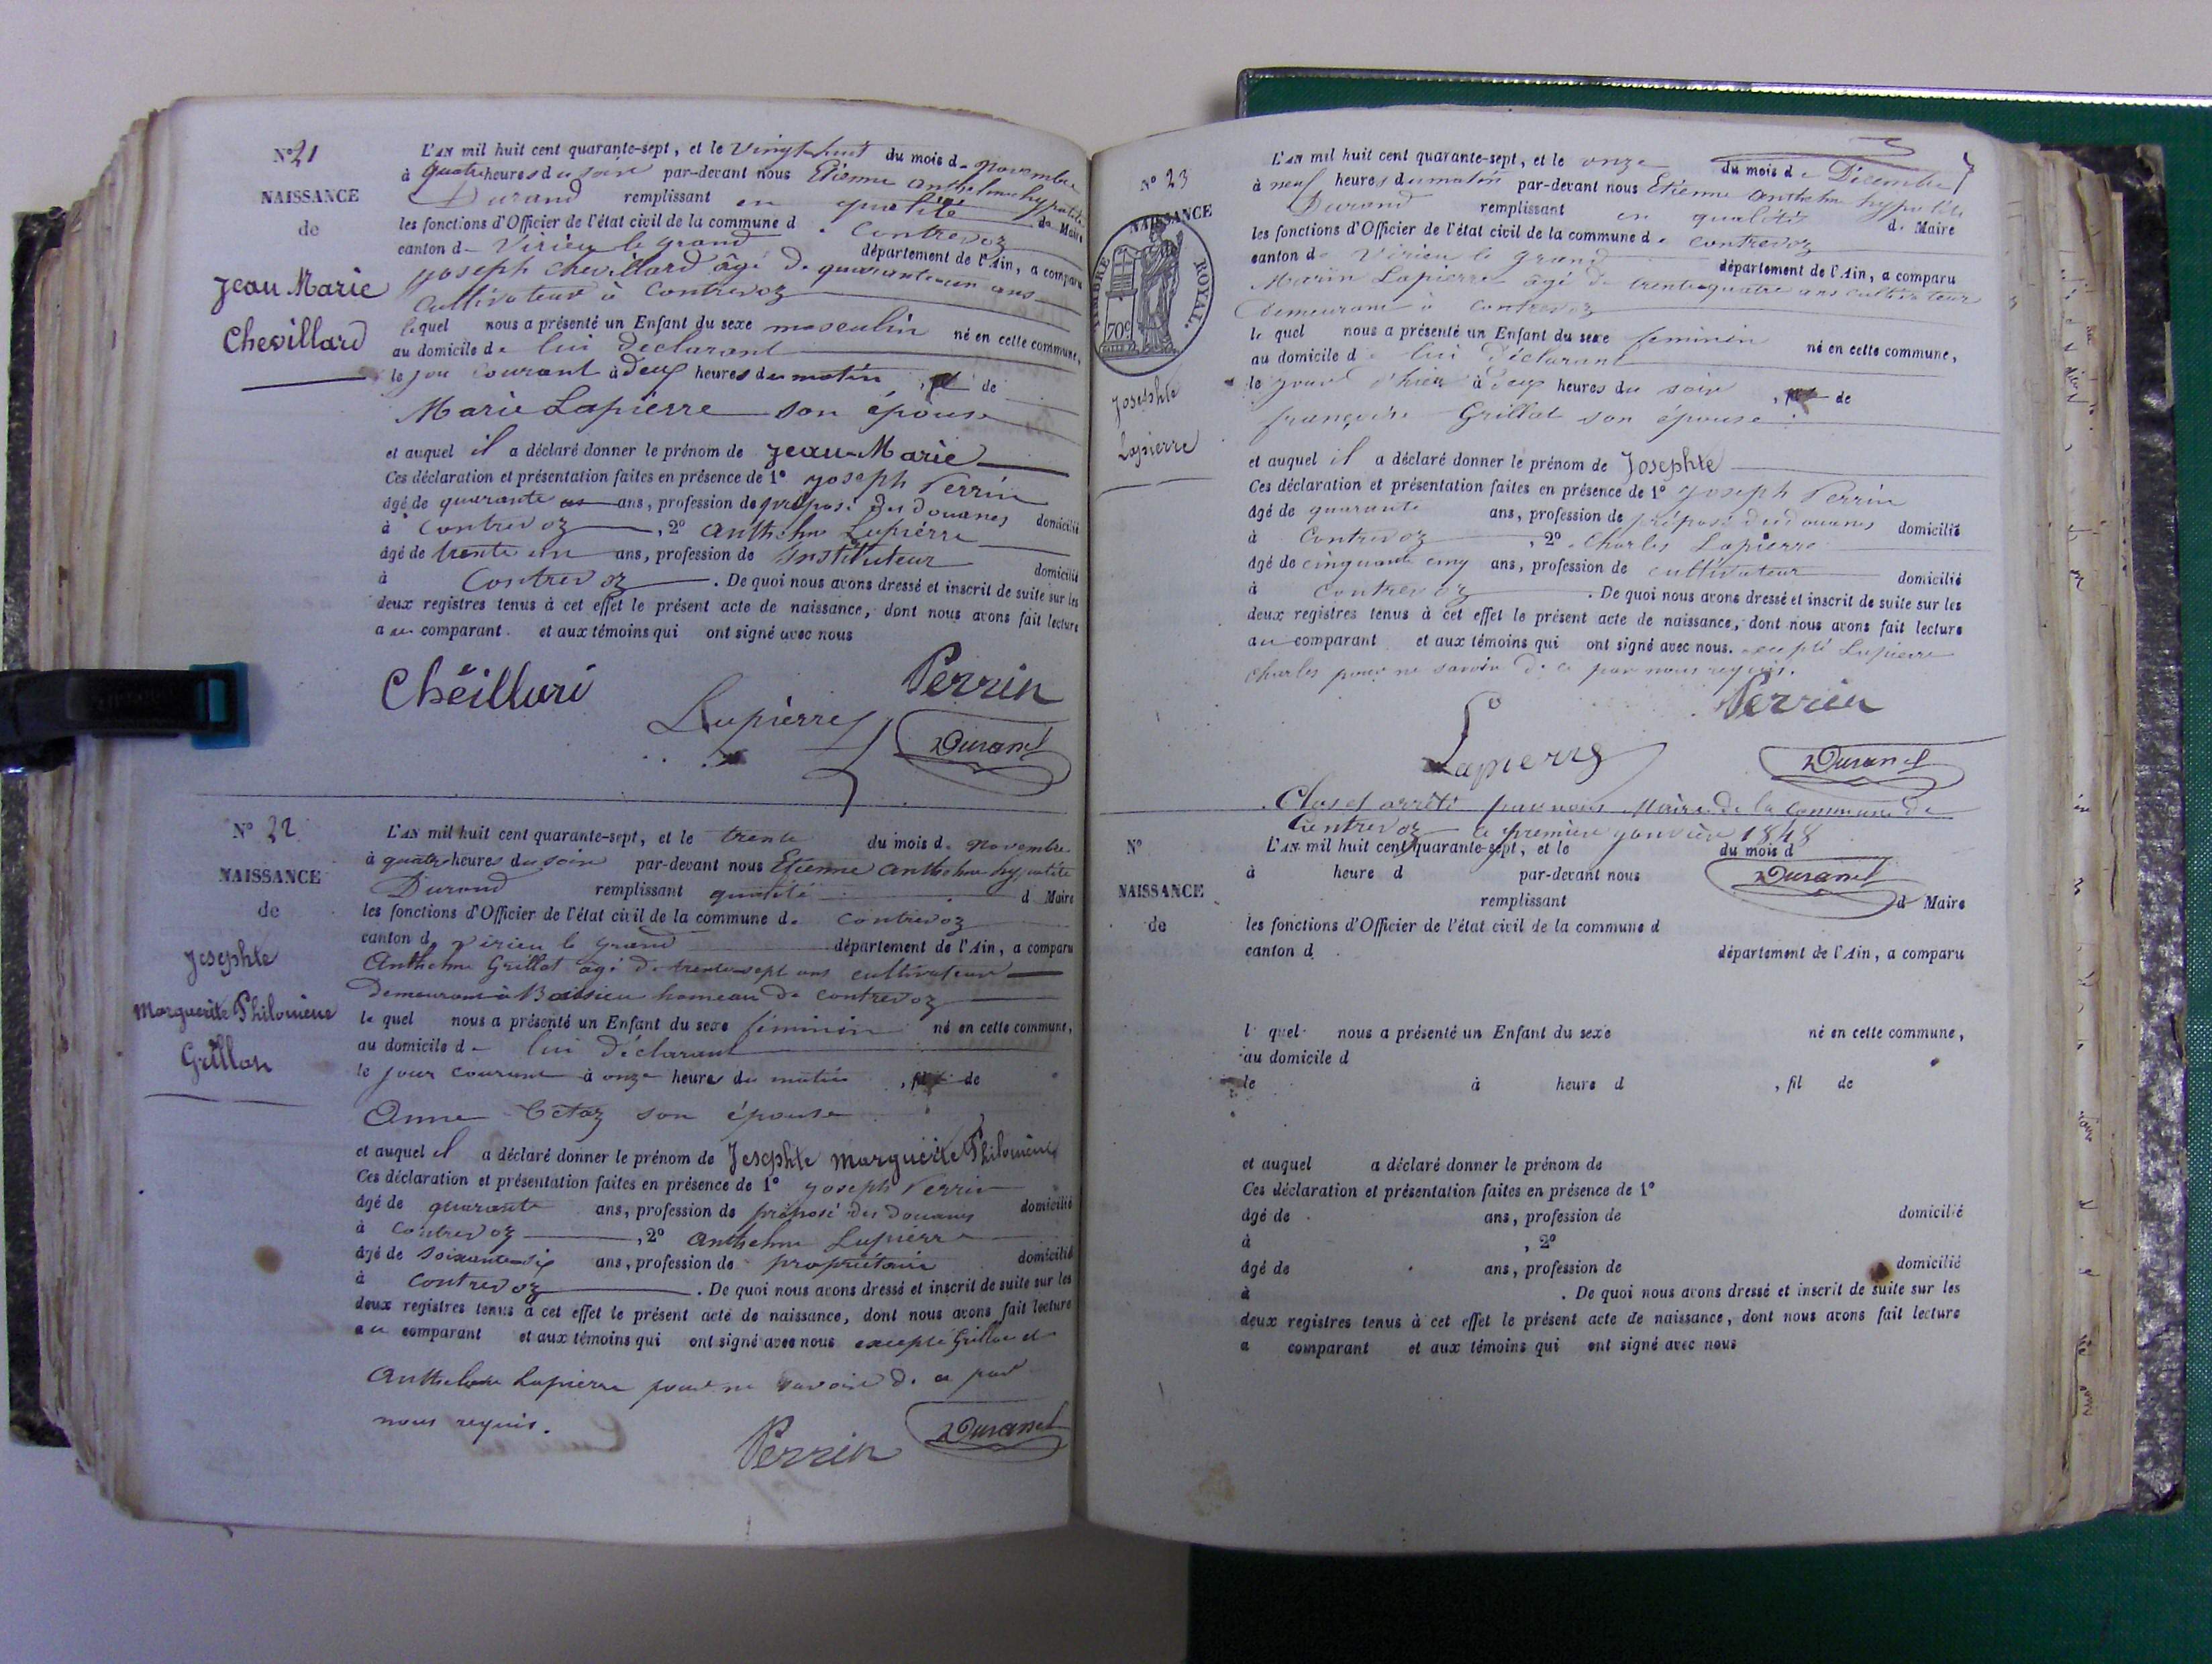 N° 21
NAISSANCE
de
Jean Marie
Chevillard
L'AN mil huit cent quarante-sept, et le vingt huit du mois de novembre
à quatre heures du soir par-devant nous Etienne Anthelme hypolite
Durand remplissant en qualité de Maire
les fonctions d'Officier de l'état civil de la commune d Contrevoz
canton d Virieu le grand département de l'Ain, a comparu
joseph chevillard âgé de quarante un ans
Cultivateur à Contrevoz
lequel nous a présenté un Enfant du sexe masculin né en cette commune,
au domicile de lui déclarant
le jour courant à deux heures du matin, de
Marie Lapierre son épouse
et auquel il a déclaré donner le prénom de Jean-Marie
Ces déclaration et présentation faites en présence de 1° joseph Perrin
âgé de quarante ans, profession de préposé des douanes domicilié
à Contrevoz, 2° Anthelme Lapierre
âgé de trente un ans, profession de instituteur domicilié
à Contrevoz. De quoi nous avons dressé et inscrit de suite sur les
deux registres tenus à cet effet le présent acte de naissance, dont nous avons fait lecture
au comparant et aux témoins qui ont signé avec nous
Chëillari Perrin
Lapierre Durand
N° 22
NAISSANCE
de
Josephte
Marguerite Philomène
Grillot
L'AN mil huit cent quarante-sept, et le trente du mois de novembre
à quatre heures du soir par-devant nous Etienne Anthelme hypolite
Durand remplissant qualité d Maire
les fonctions d'Officier de l'état civil de la commune de Contrevoz
canton d Virieu le grand département de l'Ain, a comparu
Anthelme Grillot âgé de trente-sept ans cultivateur
demeurant à Boissieu hameau de Contrevoz
le quel nous a présenté un Enfant du sexe féminin né en cette commune,
au domicile de lui déclarant
le jour courant à onze heures du matin, de
Anne son épouse
et auquel il a déclaré donner le prénom de Josephte Marguerite Philomène
Ces déclaration et présentation faites en présence de 1° joseph Perrin
âgé de quarante ans, profession de préposé des douanes domicilié
à Contrevoz, 2° Anthelme Lapierre
âgé de soixante-dix ans, profession de propriétaire domicilié
à Contrevoz. De quoi nous avons dressé et inscrit de suite sur les
deux registres tenus à cet effet le présent acte de naissance, dont nous avons fait lecture
au comparant et aux témoins qui ont signé avec nous excepté Grillot et
Anthelme Lapierre pour ne savoir de ce par
nous requis.
Perrin Durand
N° 23
NAISSANCE
TIMBRE ROYAL.
70c
Josephte
Lapierre
L'AN mil huit cent quarante-sept, et le onze du mois de Décembre
à neuf heures du matin par-devant nous Etienne Anthelme hypolite
Durand remplissant en qualité de Maire
les fonctions d'Officier de l'état civil de la commune de Contrevoz
canton de Virieu le grand département de l'Ain, a comparu
Marin Lapierre âgé de trente-quatre ans cultivateur
demeurant à Contrevoz
le quel nous a présenté un Enfant du sexe féminin né en cette commune,
au domicile de lui déclarant
le jour d'hier à deux heures du soir, de
françoise Grillot son épouse
et auquel il a déclaré donner le prénom de Josephte
Ces déclaration et présentation faites en présence de 1° joseph Perrin
âgé de quarante ans, profession de préposé des douanes domicilié
à Contrevoz, 2° Charles Lapierre
âgé de cinquante cinq ans, profession de cultivateur domicilié
à Contrevoz. De quoi nous avons dressé et inscrit de suite sur les
deux registres tenus à cet effet le présent acte de naissance, dont nous avons fait lecture
au comparant et aux témoins qui ont signé avec nous. excepté Lapierre
Charles pour ne savoir de ce par nous requis.
Perrin
Lapierre Durand
Clos et arrêté par nous Maire de la Commune de
Contrevoz le premier janvier 1848
Durand
N°
NAISSANCE
de
L'AN mil huit cent quarante-sept, et le du mois d
à heure d par-devant nous
remplissant d Maire
les fonctions d'Officier de l'état civil de la commune d
canton d département de l'Ain, a comparu
l quel nous a présenté un Enfant du sexe né en cette commune,
au domicile d
le à heure d, fil de
et auquel a déclaré donner le prénom de
Ces déclaration et présentation faites en présence de 1°
âgé de ans, profession de domicilié
à, 2°
âgé de ans, profession de domicilié
à. De quoi nous avons dressé et inscrit de suite sur les
deux registres tenus à cet effet le présent acte de naissance, dont nous avons fait lecture
a comparant et aux témoins qui ont signé avec nous